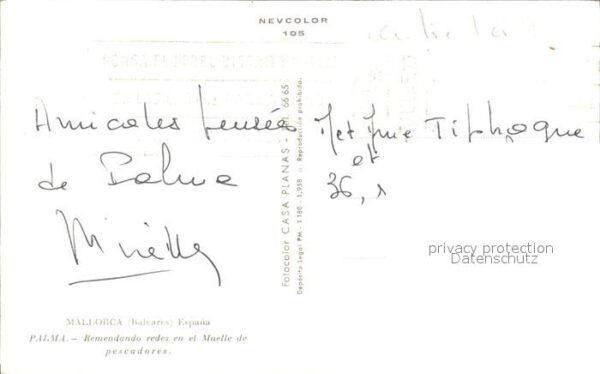 NEVCOLOR
105
Amicales pensées
de Palma
Mireille
Fotocolor CASA PLANAS - Tel. 66 65
Depósito Legal PM - 1180 - 1.958 - Reproducción prohibida.
M et Mme
et
36,
privacy protection
Datenschutz
MALLORCA (Baleares) España
PALMA. - Remendando redes en el Muelle de
pescadores.